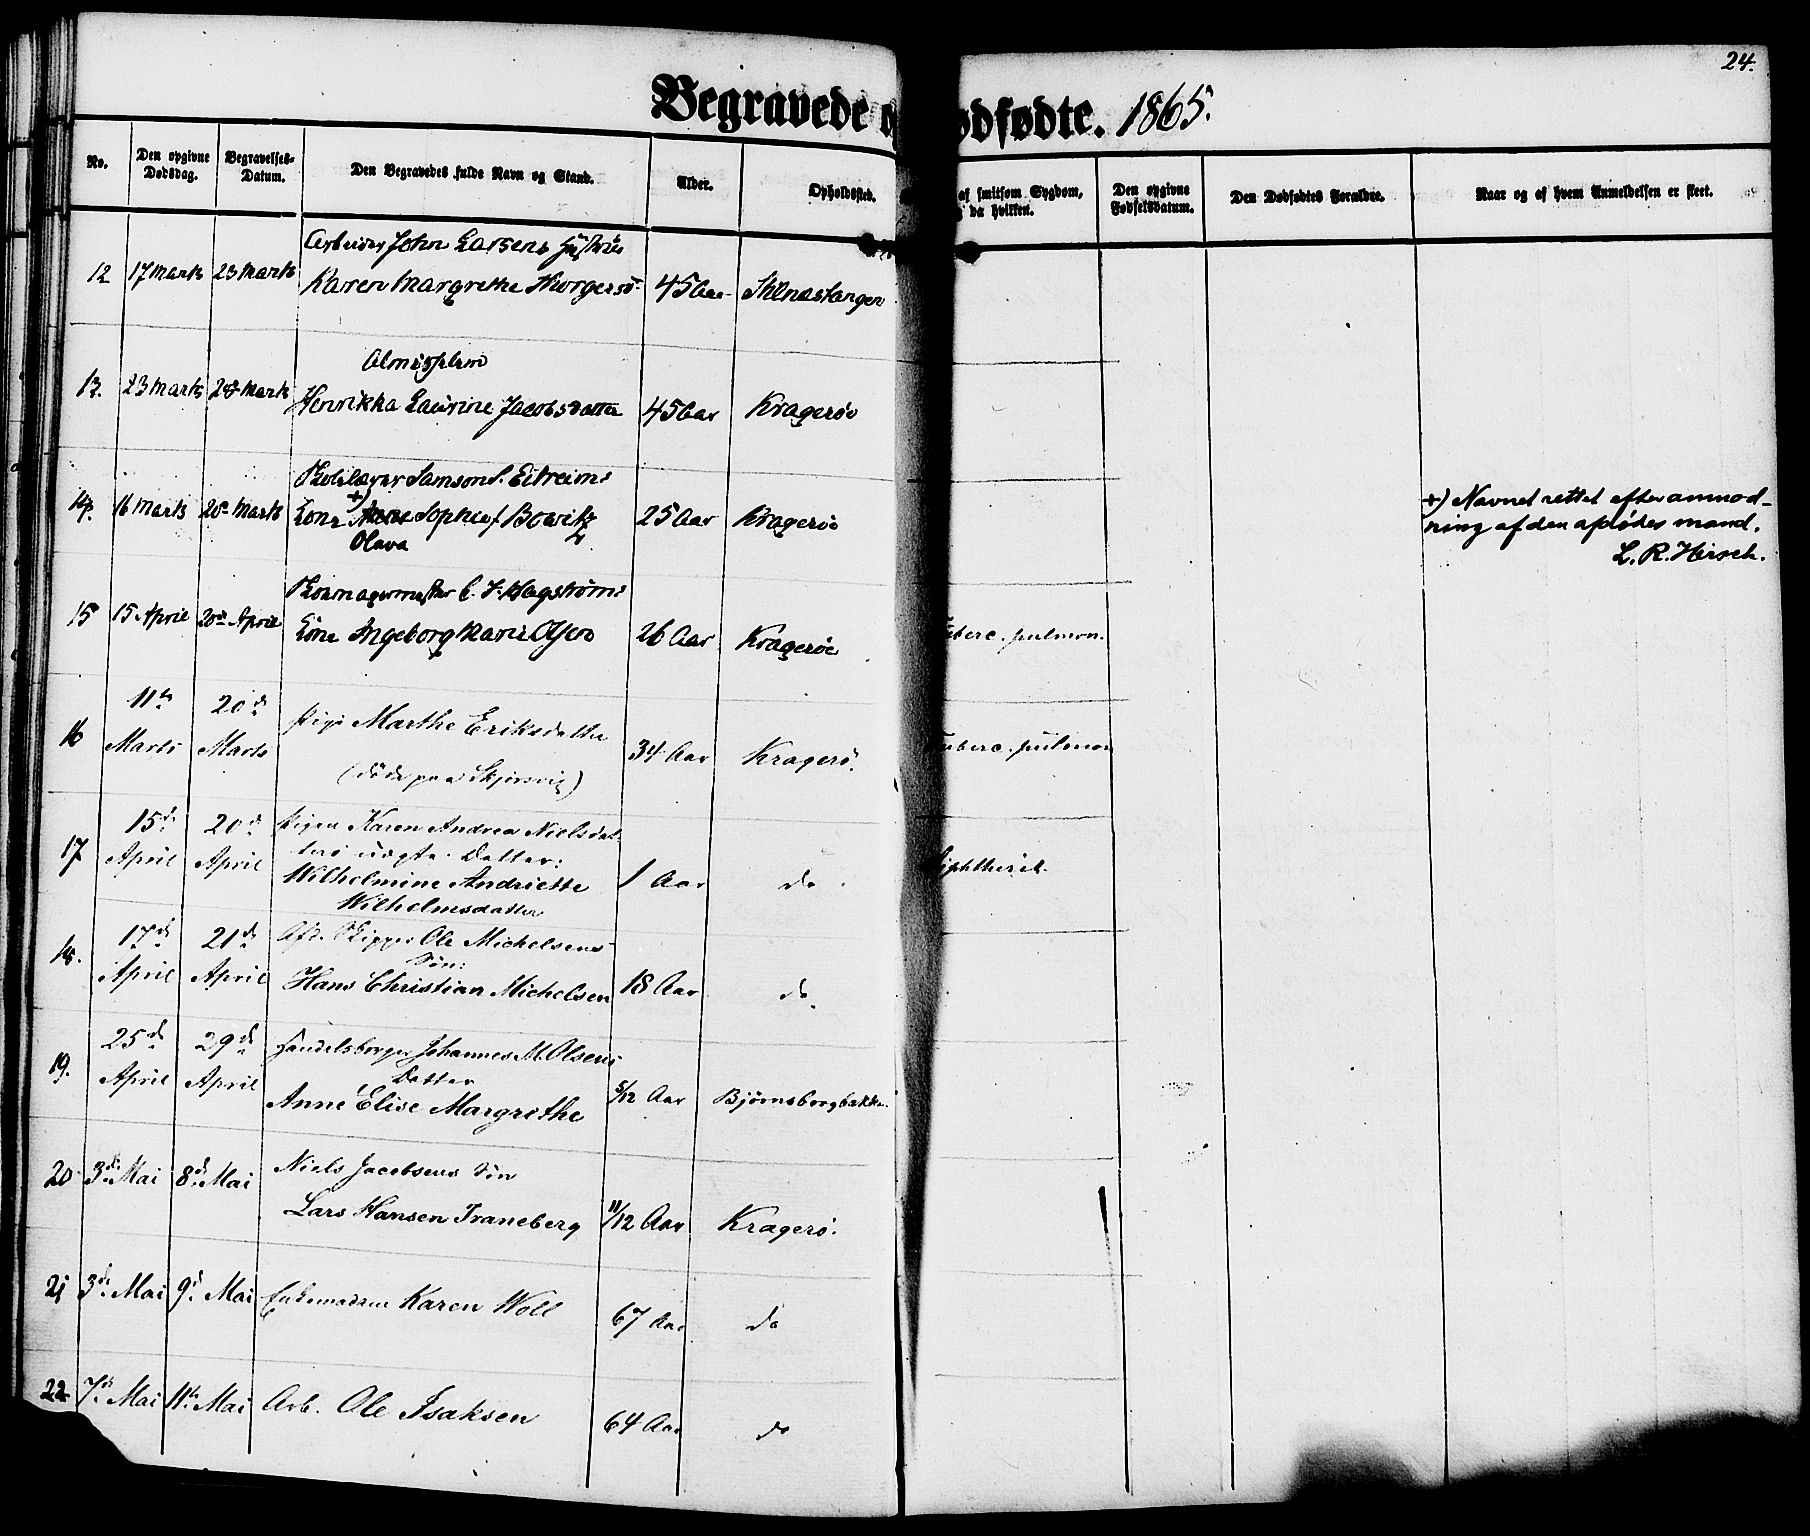 24.
Begravede o ødfødte. 1865.
No.
Den opgivne Dødsdag.
Begravelses-Datum.
Den Begravedes fulde Navn og Stand.
Alder.
Opholdssted.
af smitsom Sygdom,
da hvilken.
Den opgivne Fødselsdatum.
Den Dødfødtes Forældre.
Naar og af hvem Anmeldelsen er skeet.
Arbeider John Larsens Hustrue
12 17 Marts 23 Marts Karen Margrethe 45 Aar
Almisselem
13. 23 Marts 28 Marts Henrikka Laurine Jacobsdatter 45 Aar Kragerøe
Skolelærer Samson S. Eitreims
14. 16 Marts 20 Marts Kone +) Sophie f Bowitz 25 Aar Kragerøe
Olava
+) Navnet rettet efter anmod-
ning af den afdødes mand.
L. R. Hirsch.
Skomagermester C. J. Hagstrøms
15 15 April 20de April Kone Ingeborg Marie Olsen 26 Aar Kragerøe Tuberc. pulmon.
16 11te Marts 20de Marts Pige Marthe Eriksdatter 34 Aar Kragerö. Tuberc. pulmon
(döde paa Skjørsvig)
17 15de April 20de April Pigen Karen Andrea Nielsdat-
ters uægte Datter:
Wilhelmine Andriette 1 Aar do. Diphtherit.
Wilhelmsdatter
18. 17de April 21de April Afd. Skipper Ole Michelsens
Søn:
Hans Christian Michelsen 18 Aar do.
19. 25de April 29de April Handelsborger Johannes M. Olsens
Datter
Anne Elise Margrethe 5/12 Aar Bjørnsborgbakke.
20 3de Mai 8de Mai Niels Jacobsens Søn
Lars Hansen Traneberg 11/12 Aar Kragerö.
21 3de Mai 9de Mai Enkemadam Karen Woll 67 Aar do
22 7de Mai 11te Mai Arb. Ole Isaksen 64 Aar do